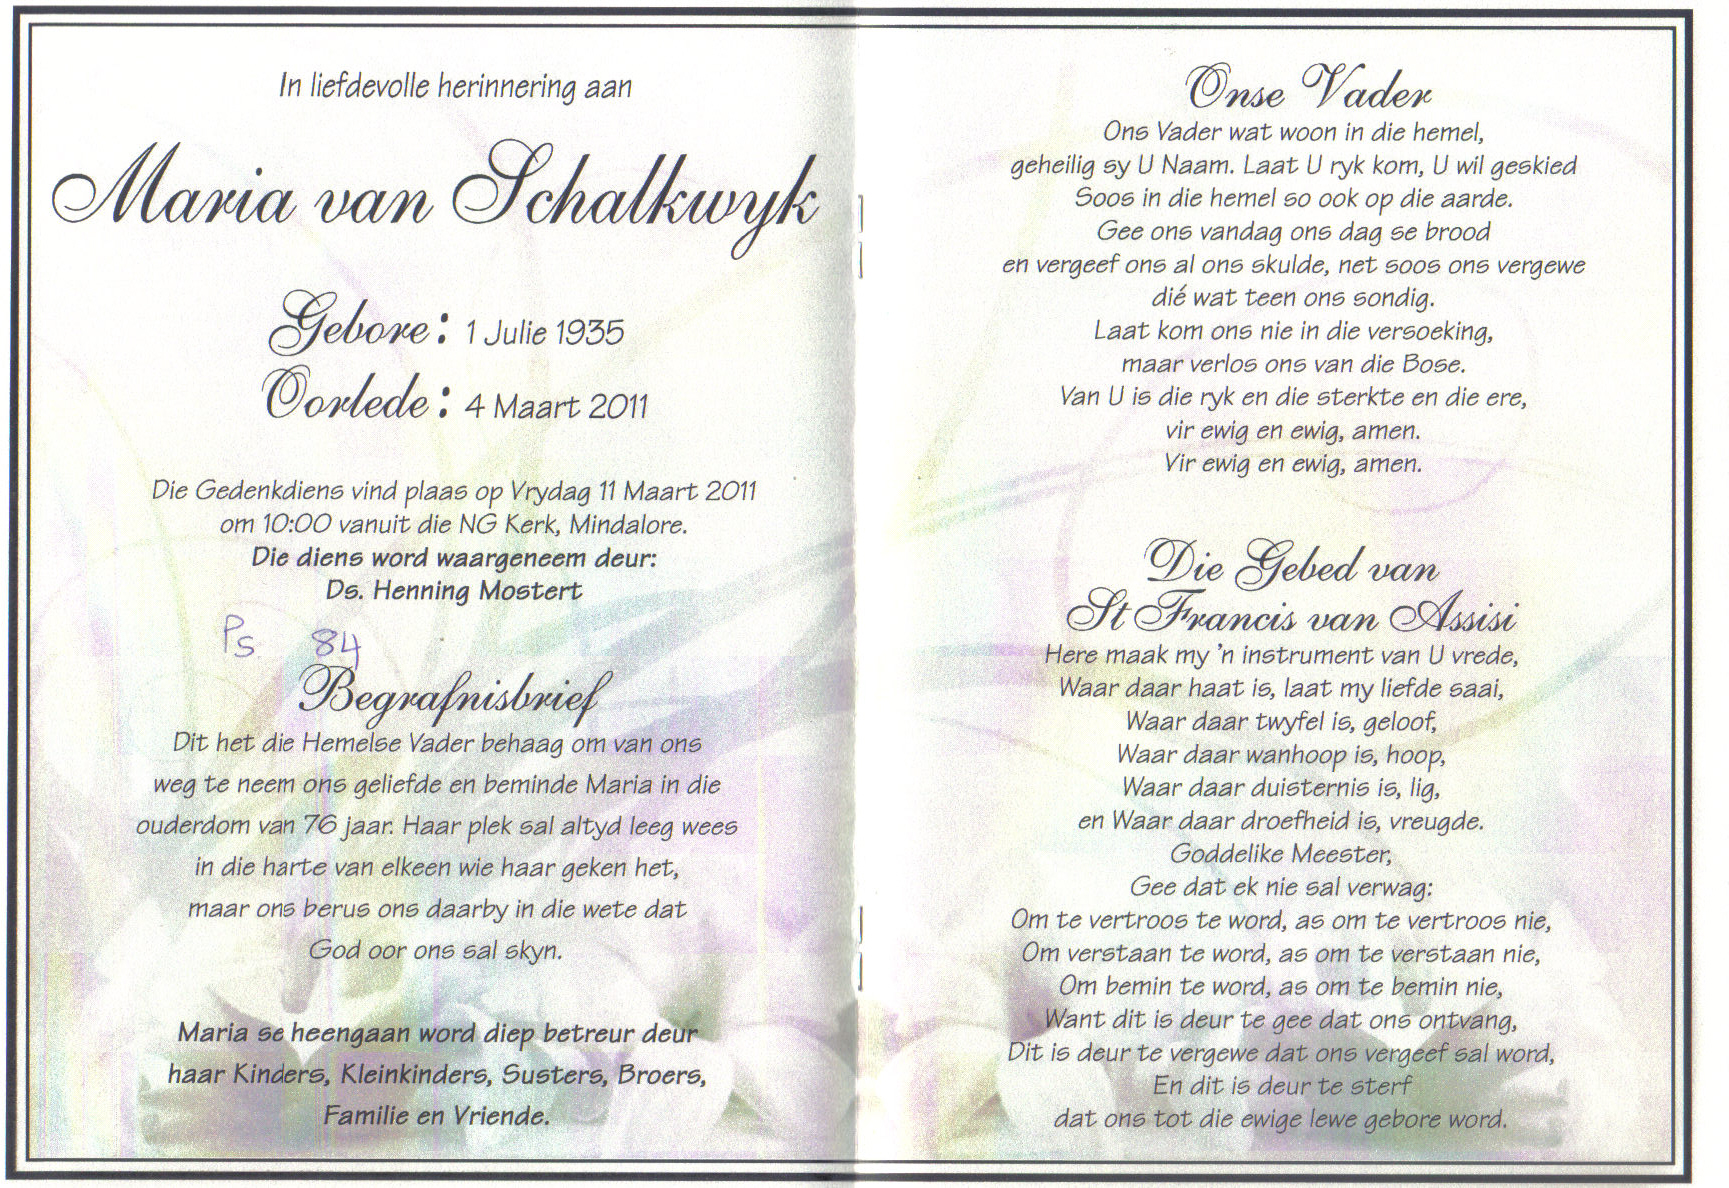 In liefdevolle herinnering aan
Maria van Schalkwyk
Gebore: 1 Julie 1935
Oorlede: 4 Maart 2011
Die Gedenkdiens vind plaas op Vrydag 11 Maart 2011
om 10:00 vanuit die NG Kerk, Mindalore.
Die diens word waargeneem deur:
Ds. Henning Mostert
Ps. 84
Begrafnisbrief
Dit het die Hemelse Vader behaag om van ons
weg te neem ons geliefde en beminde Maria in die
ouderdom van 76 jaar. Haar plek sal altyd leeg wees
in die harte van elkeen wie haar geken het,
maar ons berus ons daarby in die wete dat
God oor ons sal skyn.
Maria se heengaan word diep betreur deur
haar Kinders, Kleinkinders, Susters, Broers,
Familie en Vriende.
Onse Vader
Ons Vader wat woon in die hemel,
geheilig sy U Naam. Laat U ryk kom, U wil geskied
Soos in die hemel so ook op die aarde.
Gee ons vandag ons dag se brood
en vergeef ons al ons skulde, net soos ons vergewe
dié wat teen ons sondig.
Laat kom ons nie in die versoeking,
maar verlos ons van die Bose.
Van U is die ryk en die sterkte en die ere,
vir ewig en ewig, amen.
Vir ewig en ewig, amen.
Die Gebed van
St Francis van Assisi
Here maak my 'n instrument van U vrede,
Waar daar haat is, laat my liefde saai,
Waar daar twyfel is, geloof,
Waar daar wanhoop is, hoop,
Waar daar duisternis is, lig,
en Waar daar droefheid is, vreugde.
Goddelike Meester,
Gee dat ek nie sal verwag:
Om te vertroos te word, as om te vertroos nie,
Om verstaan te word, as om te verstaan nie,
Om bemin te word, as om te bemin nie,
Want dit is deur te gee dat ons ontvang,
Dit is deur te vergewe dat ons vergeef sal word,
En dit is deur te sterf
dat ons tot die ewige lewe gebore word.